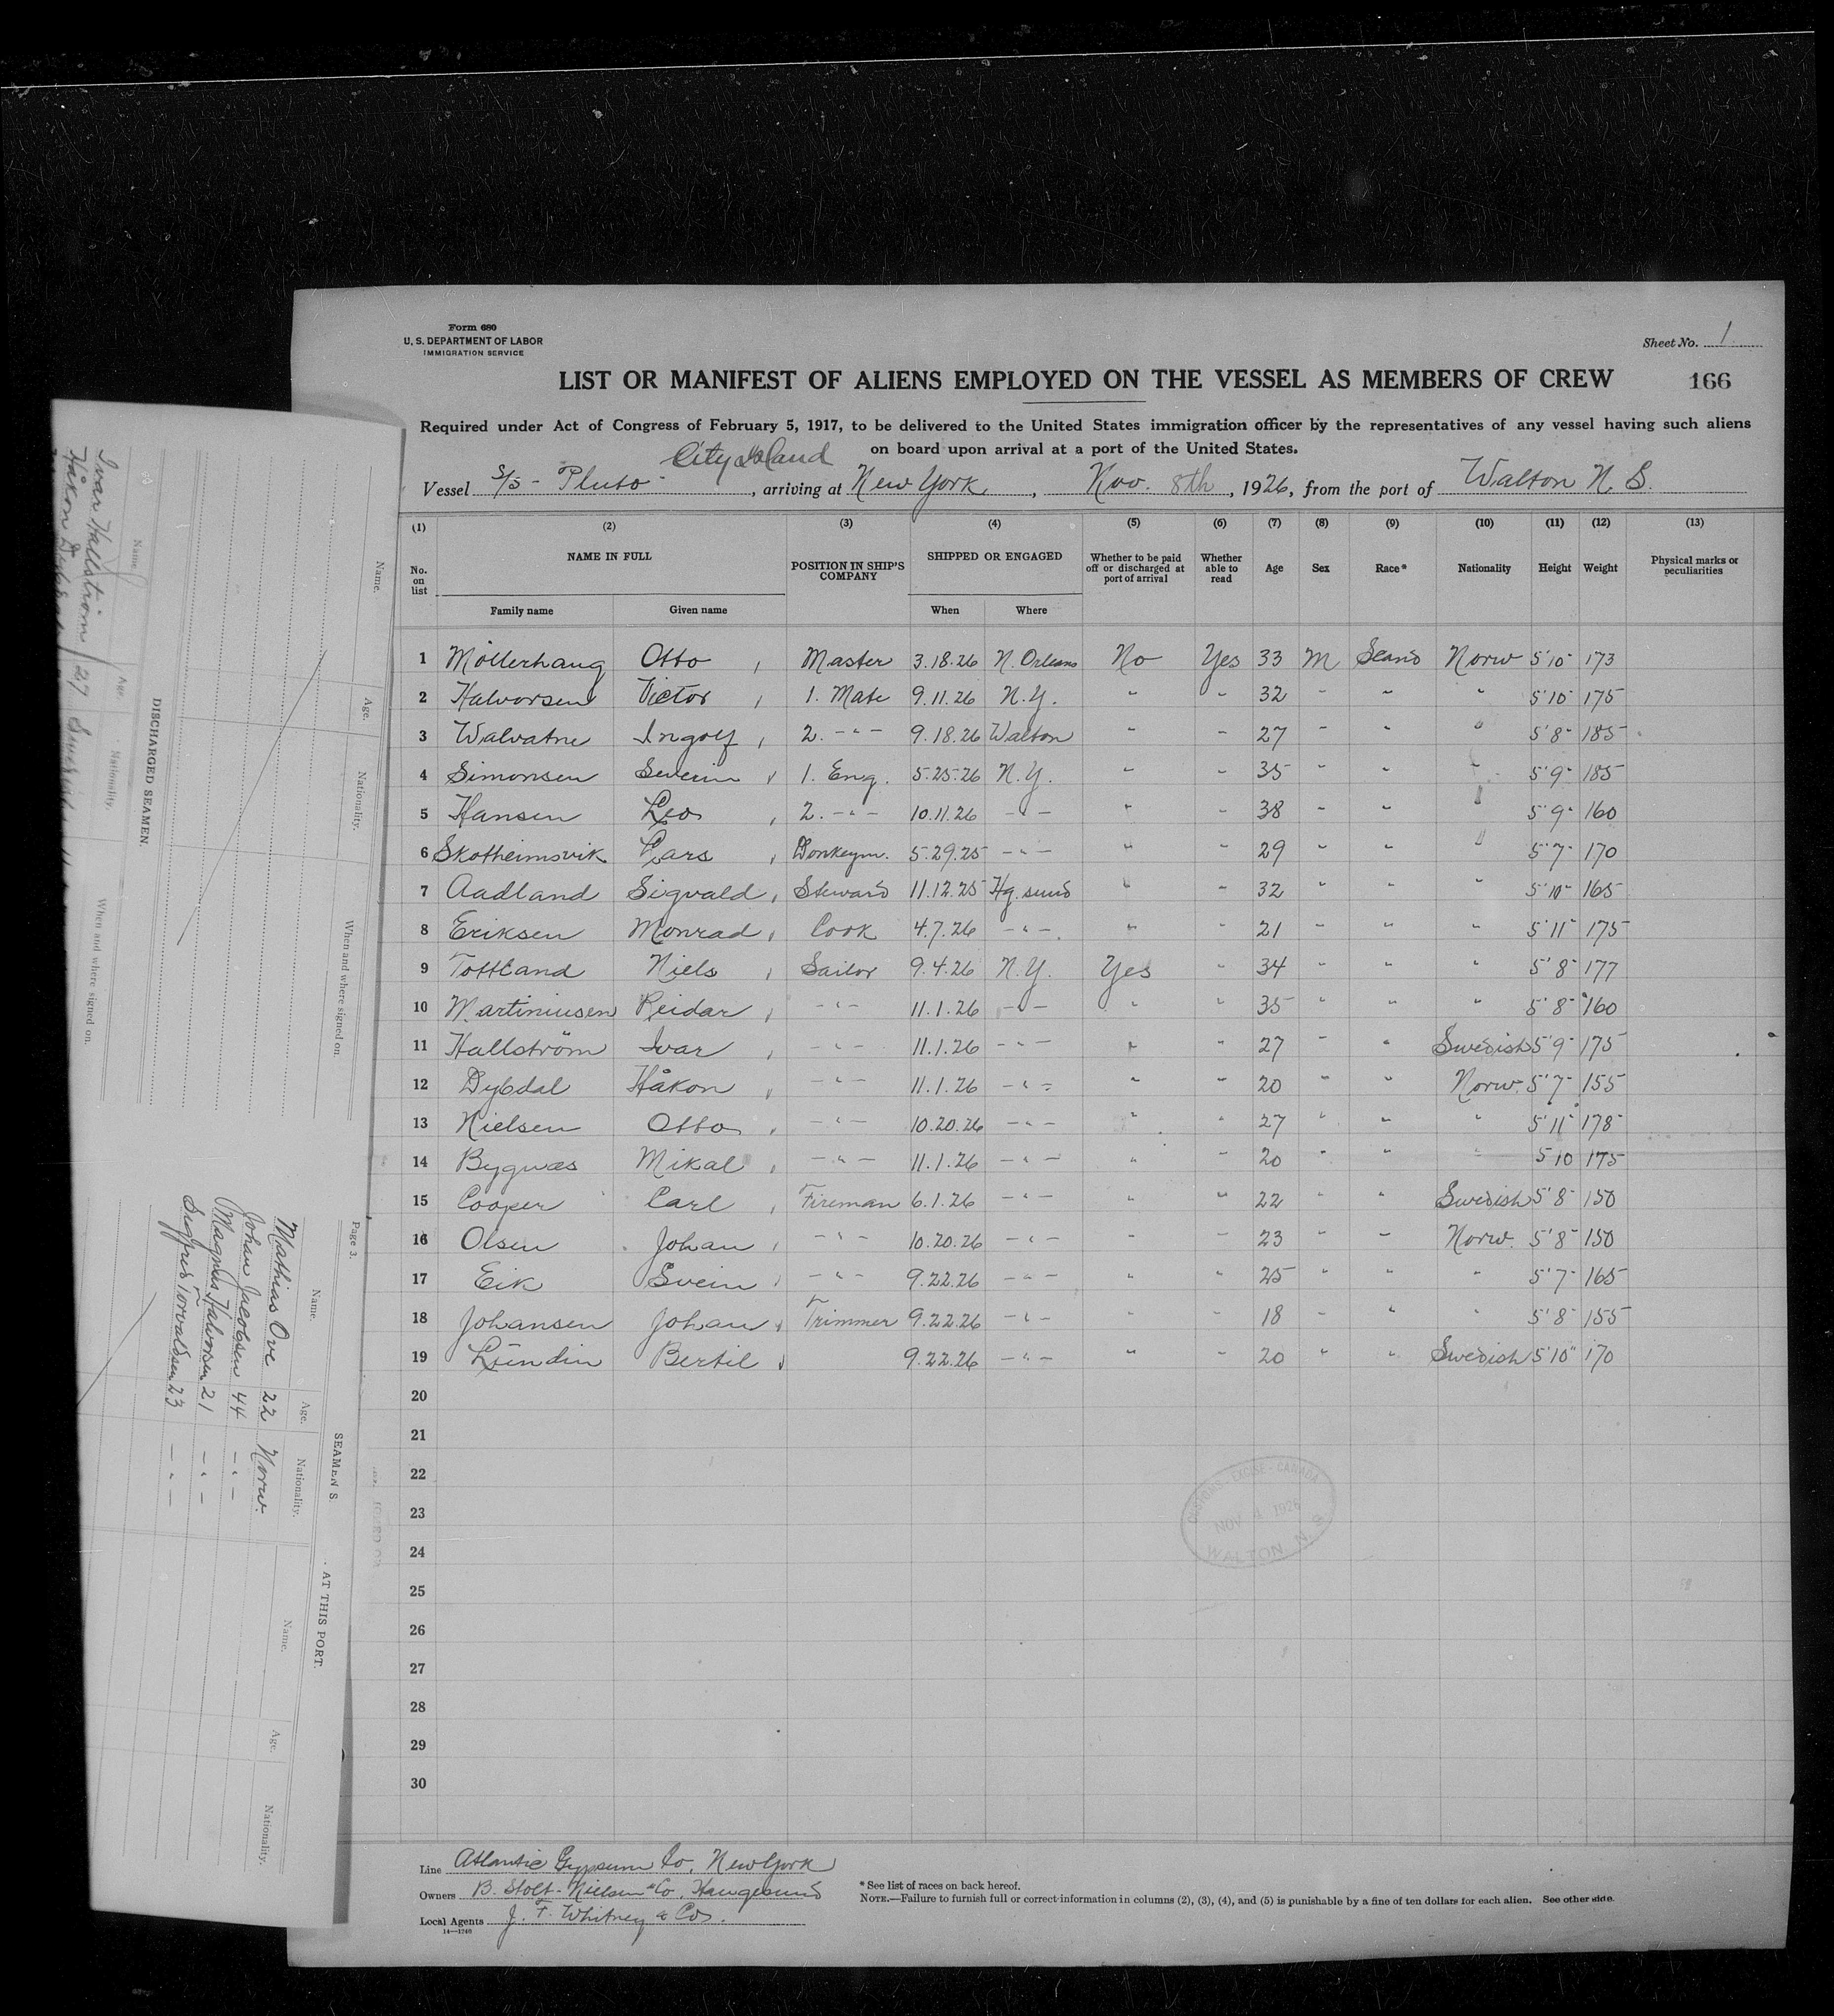 Form 680
U. S. DEPARTMENT OF LABOR
IMMIGRATION SERVICE
Sheet No. 1
LIST OR MANIFEST OF ALIENS EMPLOYED ON THE VESSEL AS MEMBERS OF CREW
166
Required under Act of Congress of February 5, 1917, to be delivered to the United States immigration officer by the representatives of any vessel having such aliens
on board upon arrival at a port of the United States.
City Island
Vessel S/S - Pluto -, arriving at New York, Nov. 8th, 1926, from the port of Walton N. S.
(1) (2) (3) (4) (5) (6) (7) (8) (9) (10) (11) (12) (13)
No. on list NAME IN FULL POSITION IN SHIP'S COMPANY SHIPPED OR ENGAGED Whether to be paid off or discharged at port of arrival Whether able to read Age Sex Race* Nationality Height Weight Physical marks or peculiarities
Family name Given name When Where
1 Möllerhaug Otto Master 3.18.26 N. Orleans No Yes 33 M Scand Norw 5'10" 173
2 Halvorsen Victor 1. Mate 9.11.26 N.Y. " " 32 " " " 5'10" 175
3 Walvatne Ingolf 2. -"- 9.18.26 Walton " " 27 " " " 5'8" 185
4 Simonsen Severin 1. Eng. 5.25.26 N.Y. " " 35 " " " 5'9" 185
5 Hansen Leo 2. -"- 10.11.26 -"- " " 38 " " " 5'9" 160
6 Skotheimsvik Lars Donkeym. 5.29.25 -"- " " 29 " " " 5'7" 170
7 Aadland Sigvald Steward 11.12.25 Hg.sund " " 32 " " " 5'10" 165
8 Eriksen Monrad Cook 4.7.26 -"- " " 21 " " " 5'11" 175
9 Toftland Niels Sailor 9.4.26 N.Y. Yes " 34 " " " 5'8" 177
10 Martiniusen Reidar -"- 11.1.26 -"- " " 35 " " " 5'8" 160
11 Hallström Ivar -"- 11.1.26 -"- " " 27 " " Swedish 5'9" 175
12 Dybdal Håkon -"- 11.1.26 -"- " " 20 " " Norw. 5'7" 155
13 Nielsen Otto -"- 10.20.26 -"- " " 27 " " " 5'11" 178
14 Bygnæs Mikal -"- 11.1.26 -"- " " 20 " " " 5 10 175
15 Cooper Carl Fireman 6.1.26 -"- " " 22 " " Swedish 5'8" 150
16 Olsen Johan -"- 10.20.26 -"- " " 23 " " Norw. 5'8" 150
17 Eik Svein -"- 9.22.26 -"- " " 25 " " " 5'7" 165
18 Johansen Johan Trimmer 9.22.26 -"- " " 18 " " " 5'8" 155
19 Lundin Bertil 9.22.26 -"- " " 20 " " Swedish 5'10" 170
20
21
22
23
24
25
26
27
28
29
30
CUSTOMS - EXCISE - CANADA
NOV 4 1926
WALTON N. S.
Line Atlantic Gypsum Co, New York
Owners B. Stolt-Nielsen & Co, Haugesund
Local Agents J. F. Whitney & Co.
14—1240
* See list of races on back hereof.
NOTE.—Failure to furnish full or correct information in columns (2), (3), (4), and (5) is punishable by a fine of ten dollars for each alien. See other side.
Name. Age. Nationality. When and where signed on.
DISCHARGED SEAMEN.
Name. Age. Nationality. When and where signed on.
Ivar Hallström 27 Swedish
Håkon
Page 3.
SEAMEN S AT THIS PORT.
Name. Age. Nationality. Name. Age. Nationality.
Mathias Ove 22 Norw.
Johan Jacobsen 44 -"-
Magnus Halvorsen 21 -"-
Sigfred Torvaldsen 23 -"-